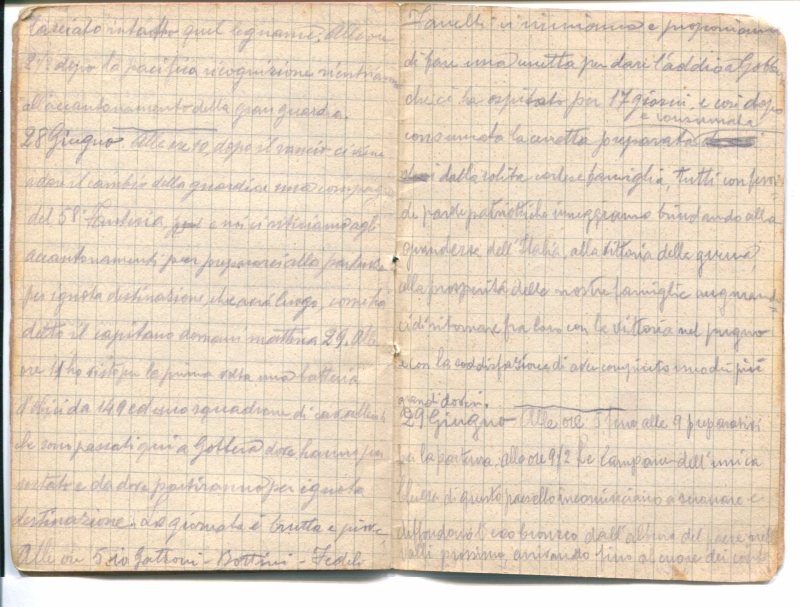 lasciato intatto quel legname. Alle ore
21½ dopo la pacifica ricognizione rientriamo
all'accantonamento della gran guardia.
28 Giugno Alle ore 10, dopo il rancio ci viene
a dare il cambio della guardia una compagnia
del 58° Fanteria, e noi ci ritiriamo agli
accantonamenti per prepararci alla partenza
per ignota destinazione, che avrà luogo, come ha
detto il capitano domani mattina 29. Alle
ore 11 ho visto per la prima volta una batteria
d'obici da 149 ed uno squadrone di cavalleria
che sono passati qui a Gobbera dove hanno per
nottato e da dove partiranno per ignota
destinazione. La giornata è brutta e piove
Alle ore 5 io Gattoni - Bottini - Fedeli
Zanelli ci riuniamo e proponiamo
di fare una cenetta per dare l'addio a Gobbera
che ci ha ospitato per 17 giorni, e così dopo
e consumata
consumata la cenetta preparata
dalla solita cortese famiglia, tutti con fervi
de parole patriottiche inneggiamo brindando alla
grandezza dell'Italia, alla vittoria della guerra,
alla prosperità delle nostre famiglie augurando
ci di ritornare fra loro con la vittoria nel pugno
e con la soddisfazione di aver compiuto uno dei più
grandi doveri.
29 Giugno Alle ore 5 fino alle 9 preparativi
per la partenza. Alle ore 9½ le campane dell'unica
chiesa di questo paesello incominciano a suonare e
diffondono l'eco bronzeo dall'altura del paese nelle
valli prossime, arrivando fino al cuore dei